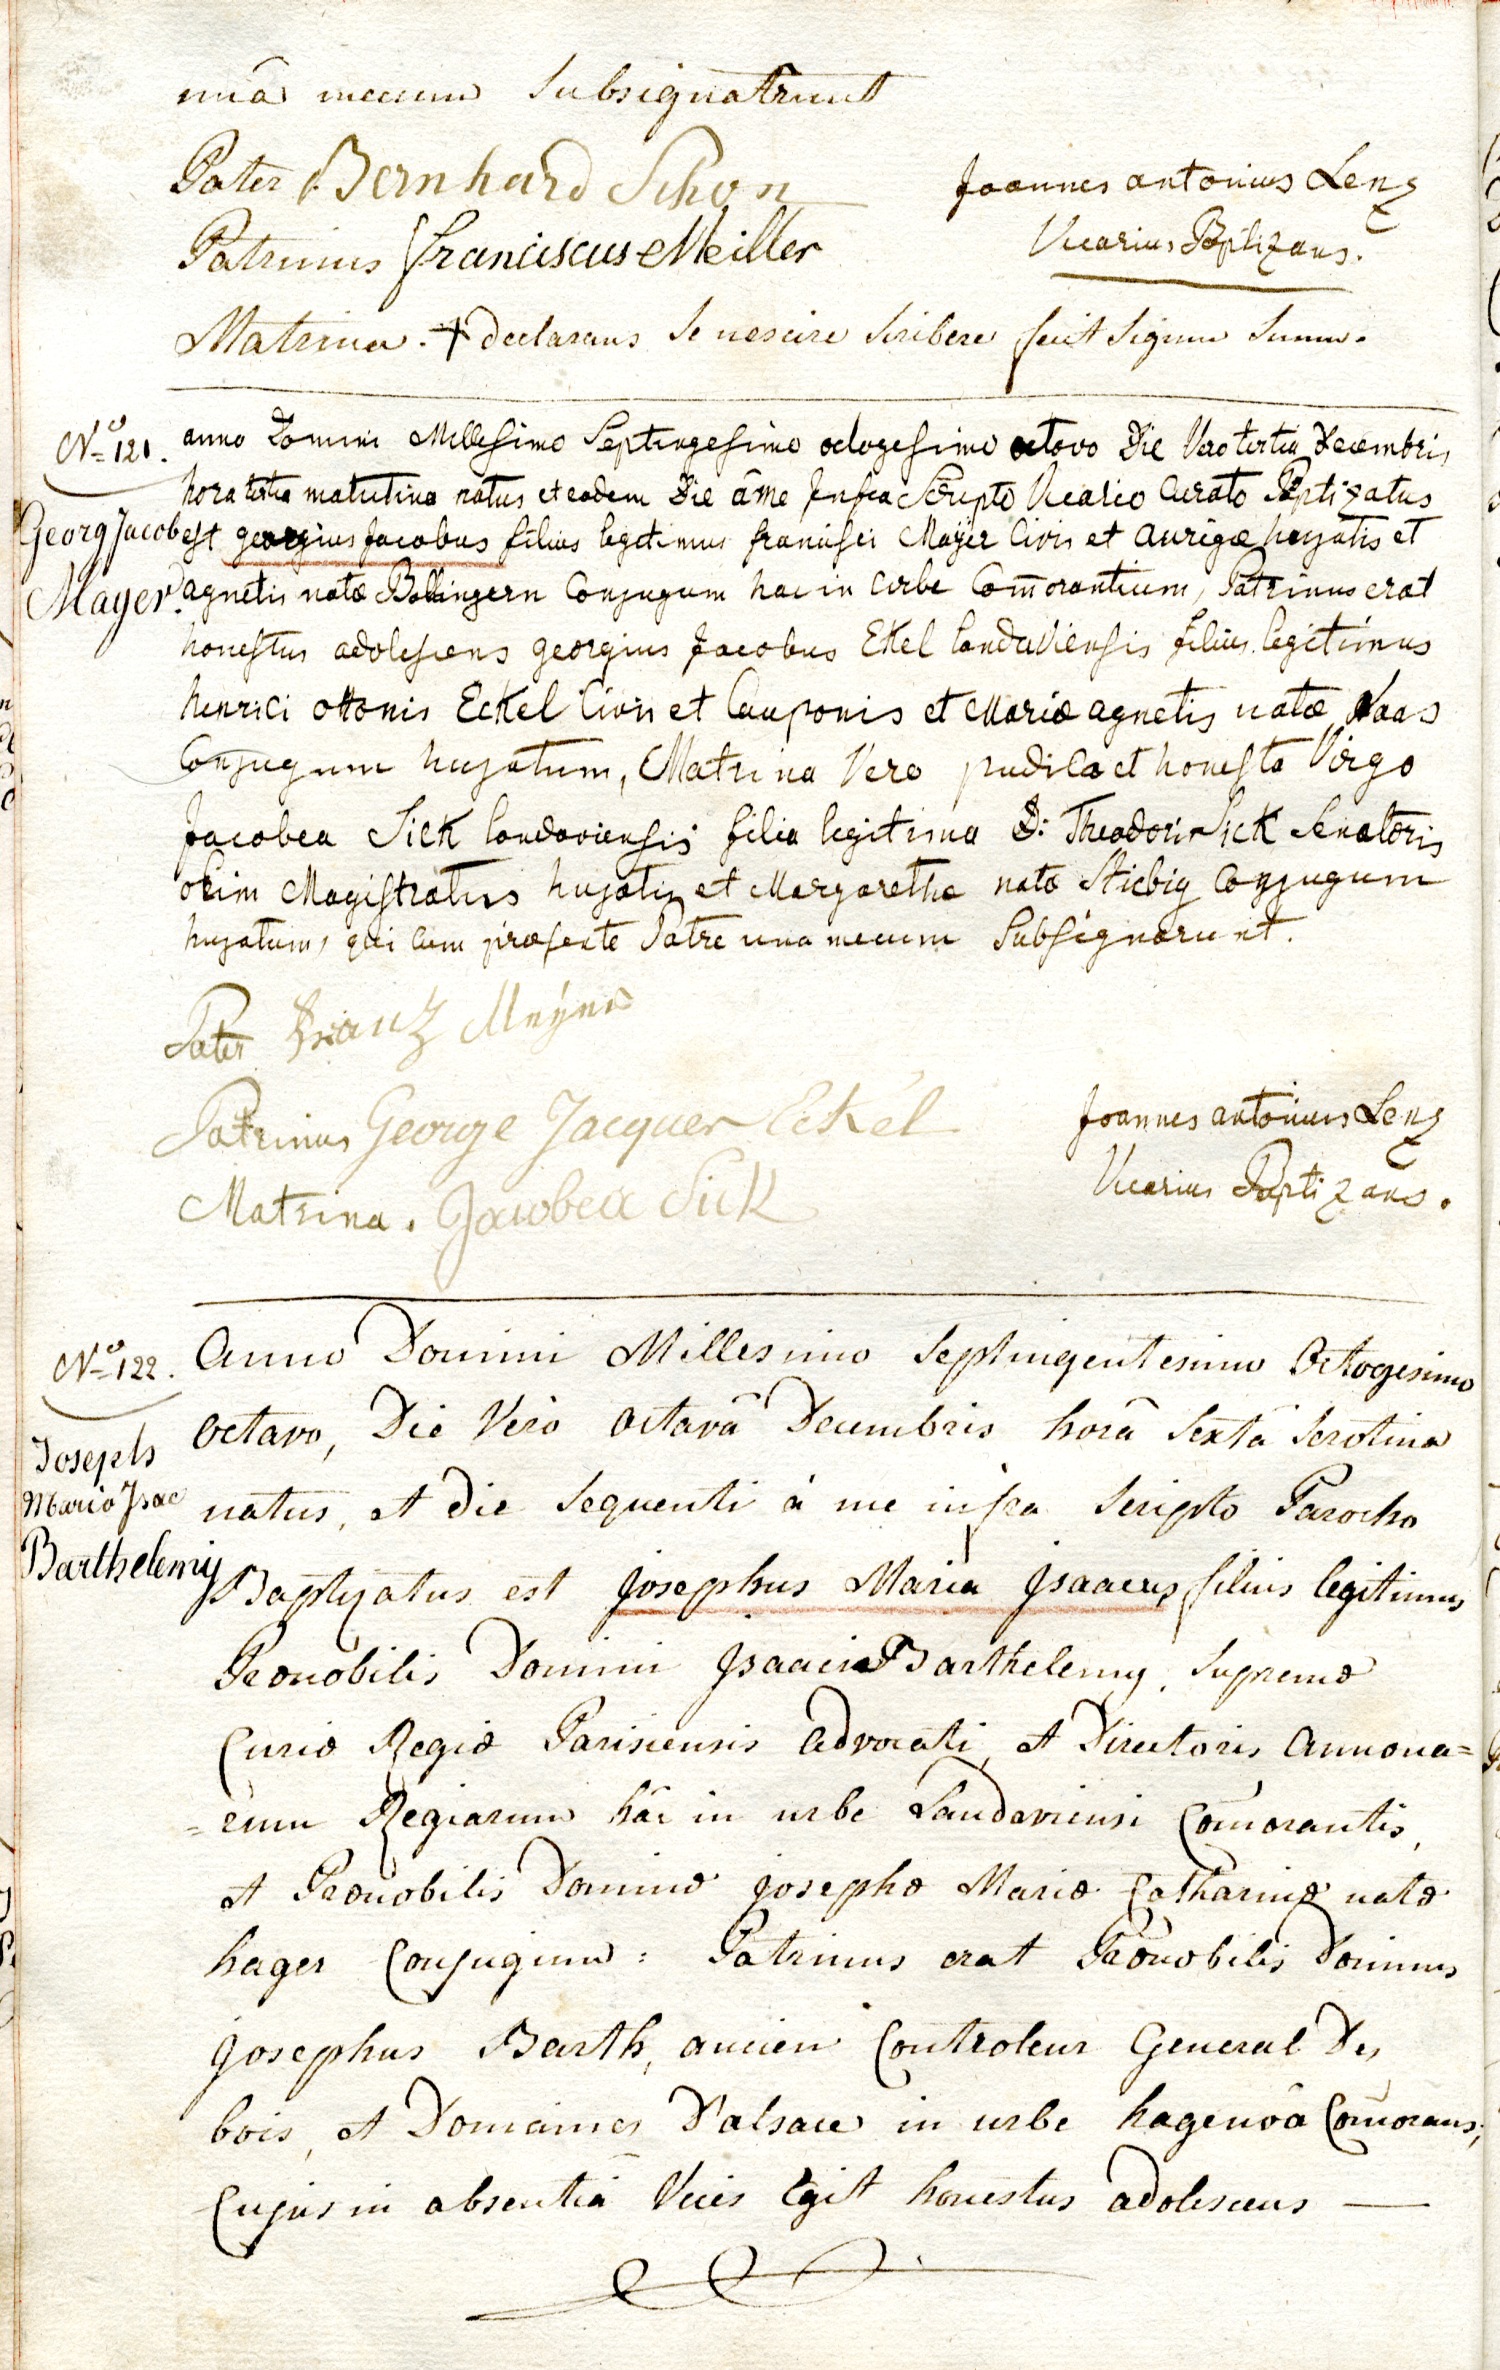 unâ mecum Subsignarunt
Pater Bernhard Schon
Joannes antonius Lenz
Patrinus franciscus Meiller
Vicarius Baptizans.
Matrina. + declarans Se nescire Scribere fecit Signum Suum.
N.o 121.
anno Domini Millesimo Septingesimo octogesimo octovo Die Vero tertia Decembris
hora tertia matutina natus et eadem Die â me Infra Scripto Vicario Curato Baptizatus
Georg Jacob
est georgius Jacobus filius legitimus francisci Mayer Civis et aurigæ hujatis et
Mayer.
agnetis natæ Bollingern Conjugum hac in urbe Com̃orantium, Patrinus erat
honestus adolescens georgius Jacobus Ekel landaviensis filius legitimus
henrici ottonis Eckel Civis et Cauponis et Mariæ agnetis natæ Naas
Conjugum hujatum, Matrina Vero pudica et honesta Virgo
Jacobea Sick landaviensis filia legitima D: Theodori Sick Senatoris
olim Magistratus hujatis et Margarethæ natæ Stiebig Conjugum
hujatum, qui cum præsente Patre una mecum Subsignarunt.
Pater Franz Meyer
Patrinus George Jacques Eckel
Joannes antonius Lenz
Matrina. Jacobea Sick
Vicarius Baptizans.
N.o 122.
Anno Domini Millesimo Septingentesimo Octogesimo
octavo, Die Vero octavâ Decembris horâ Sextâ Serotina
Joseph
Maria Isac
natus, et die Sequenti à me infra Scripto Parocho
Barthelemy
Baptizatus est Josephus Maria Isaacus filius legitimus
Prænobilis Domini Isaaci Barthelemy, Supremæ
Curiæ Regiæ Parisiensis advocati, et Directoris annona=
=rum Regiarum hâc in urbe Landaviensi Com̃orantis,
et Prænobilis Dominæ Josephæ Mariæ Catharinæ natæ
hager Conjugum: Patrinus erat Prænobilis Dominus
Josephus Barth, ancien Controleur General Des
bois, et Domaines D'alsace in urbe hagenôa Com̃orans;
Cujus in absentiâ Vices Egit honestus adolescens —